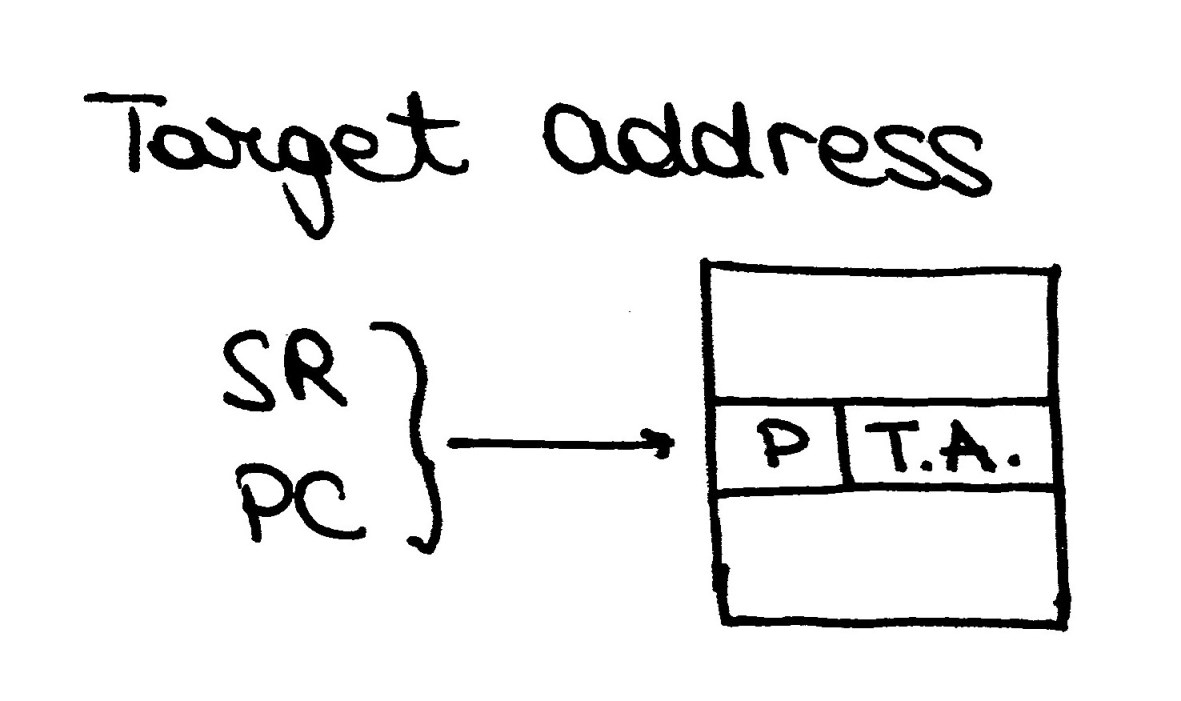 Target address
SR
PC
P T.A.